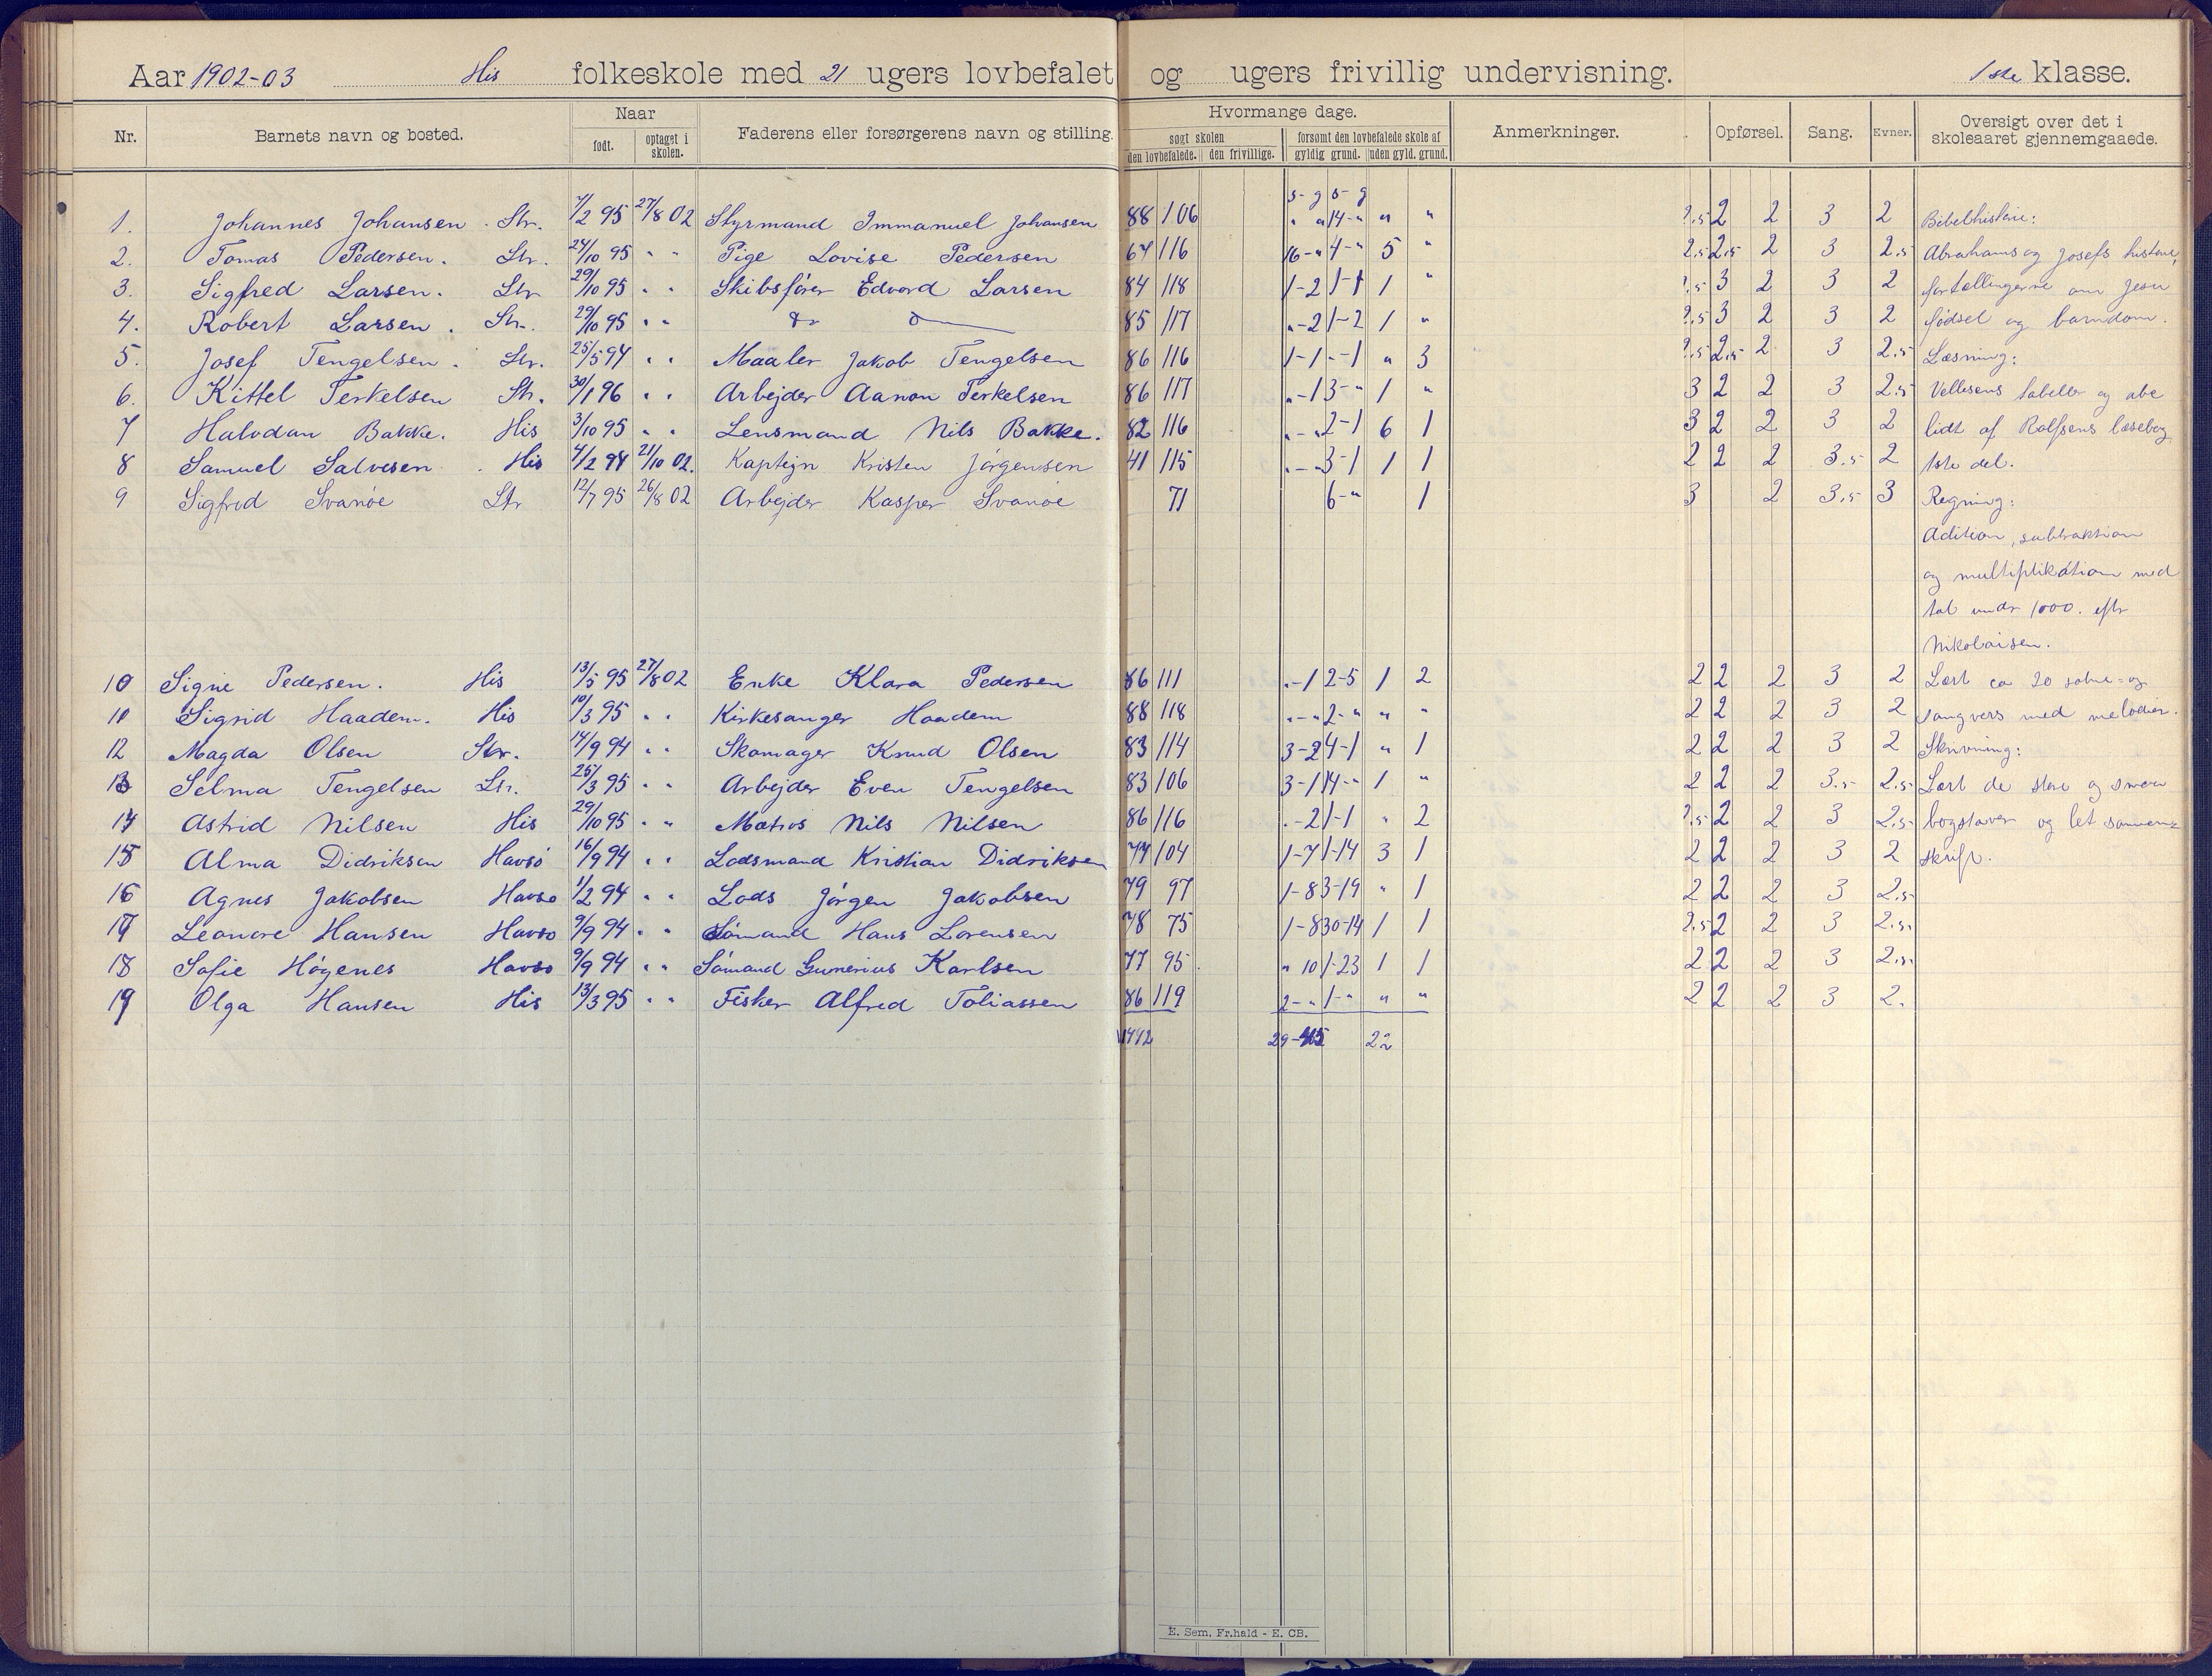 Aar 1902-03 His folkeskole med 21 ugers lovbefalet og ugers frivillig undervisning. 1ste klasse.
Nr. Barnets navn og bosted. Naar født. optaget i skolen. Faderens eller forsørgerens navn og stilling. Hvormange dage. søgt skolen den lovbefalede. den frivillige. forsømt den lovbefalede skole af gyldig grund. uden gyld. grund. Anmerkninger. Opførsel. Sang. Evner. Oversigt over det i skoleaaret gjennemgaaede.
s- g s- g
1. Johannes Johansen Str. 7/2 95 27/8 02 Styrmand Immanuel Johansen 88 106 " " 14 - " " " 2 2 3 2 Bibelhistorie:
2. Tomas Pedersen. Str. 24/10 95 " " Pige Lovise Pedersen 64 116 16 - " 4 - " 5 " 2.5 2.5 2 3 2.5 Abrahams og Josefs historie,
3. Sigfred Larsen. Str. 29/10 95 " " Skibsfører Edvard Larsen 84 118 1-2 1-1 1 " 3 2 3 2 fortællingerne om Jesu
4. Robert Larsen. Str. 29/10 95 " " 85 117 "-2 1-2 1 " 2.5 3 2 3 2 fødsel og barndom.
5. Josef Tengelsen. Str. 25/5 94 " " Maaler Jakob Tengelsen 86 116 1-1 "-1 " 3 2.5 2 3 2.5 Læsning:
6. Kittel Terkelsen Str. 30/1 96 " " Arbejder Aanon Terkelsen 86 117 "-1 3-" 1 " 3 2 2 3 2.5 tabeller og abc
7 Halvdan Bakke. His 3/10 95 " " Lensmand Nils Bakke. 82 116 "-" 2-1 6 1 3 2 2 3 2 lidt af Rolfsens læsebog
8 Samuel Salvesen. His 4/2 94 21/10 02. Kaptejn Kristen Jørgensen 41 115 "-" 3-1 1 1 2 2 2 3.5 2 1ste del.
9 Sigfred Svanøe Str 12/7 95 26/8 02 Arbejder Kasper Svanøe 71 6-" 1 3 2 3.5 3 Regning:
Adition, subtraktion
og multiplikation med
tal under 1000. efter
Nikolaisen.
10 Signe Pedersen. His 13/5 95 27/8 02 Enke Klara Pedersen 86 111 "-1 2-5 1 2 2 2 2 3 2 Lært ca 20 salme- og
11 Sigrid Haadem. His 10/3 95 " " Kirkesanger Haadem 88 118 "-" 2-" " " 2 2 2 3 2 sangvers med melodier.
12 Magda Olsen Str. 14/9 94 " " Skomager Knud Olsen 83 114 3-2 4-1 " 1 2 2 2 3 2 Skrivning:
13 Selma Tengelsen Str. 25/3 95 " " Arbejder Even Tengelsen 83 106 3-1 14-" 1 " 2 2 2 3.5 2.5 Lært de store og smaa
14 Astrid Nilsen His 29/10 95 " " Matros Nils Nilsen 86 116 "-2 1-1 " 2 2.5 2 2 3 2.5 bogstaver og let sammen=
15 Alma Didriksen Havsø 16/9 94 " " Lodsmand Kristian Didriksen 74 104 1-7 1-14 3 1 2 2 2 3 2 skrift.
16 Agnes Jakobsen Havsø 1/2 94 " " Lods Jørgen Jakobsen 79 97 1-8 3-19 " 1 2 2 2 3 2.5
17 Leonore Hansen Havsø 9/9 94 " " Sømand Hans Lorensen 78 75 1-8 30-14 1 1 2.5 2 2 3 2.5
18 Sofie Høgenes Havsø 9/9 94 " " Sømand Gunerius Karlsen 77 95 " 10 1-23 1 1 2 2 2 3 2.5
19 Olga Hansen His 13/3 95 " " Fisker Alfred Tobiassen 86 119 2-" 1-" " " 2 2 2 3 2.
1442 29-45 22
E. Sem, Fr.hald - E. CB.